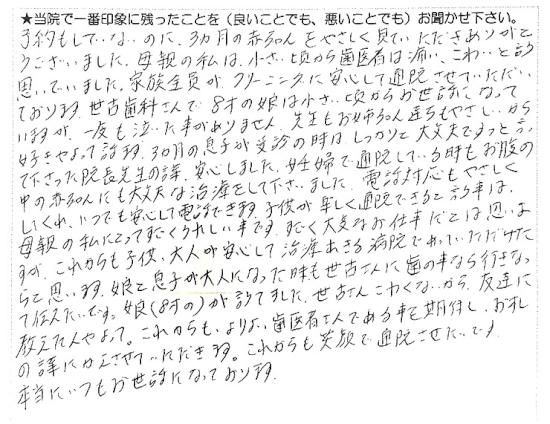 ★当院で一番印象に残ったことを（良いことでも、悪いことでも）お聞かせ下さい。
予約もしていないのに、3カ月の赤ちゃんをやさしく見ていただきありがと
うございました。母親の私は、小さい頃から歯医者は痛い、こわいと
思っていました。家族全員が、クリーニングに安心して通院させていただい
ております。世古歯科さんで8才の娘は小さい頃からお世話になって
いますが、一度も泣いた事がありません。先生もお姉さん達もやさしいから
好きやよって話す。3カ月の息子が受診の時はしっかりと大丈夫ですっと言っ
て下さった院長先生の話、安心しました。妊婦で通院している時もお腹の
中の赤ちゃんにも大丈夫な治療をして下さいました。電話対応もやさしく
しいくれ、いつでも安心して電話できます。子供が楽しく通院できると言う事は、
母親の私にとってすごくうれしい事です。すごく大変なお仕事だとは思いま
すが、これからも子供、大人が安心して治療あきる病院であっていただけた
らと思います。娘と息子が大人になった時も世古さんに歯の事なら行きなっ
て伝えたいです。娘（8才の）が言ってました。世古さんこわくないから、友達に
教えたんやよって。これからも、よりよい歯医者さんである事を期待し、お礼
の話にかえさせていただきます。これからも笑顔で通院させたいです。
本当にいつもお世話になっております。